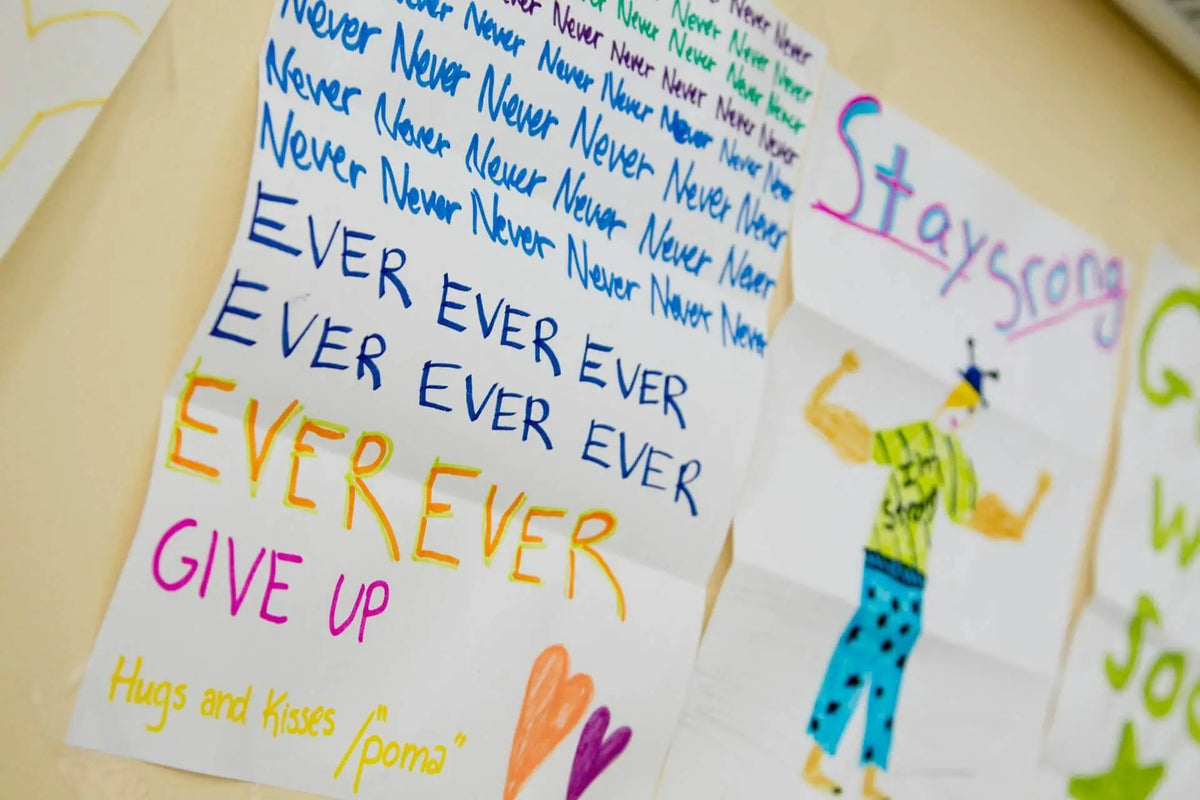 Never Never
Never Never Never
Never Never Never Never
Never Never Never Never Never
Never Never Never Never Never Never Never
Never Never Never Never Never Never
Never Never Never Never Never Never
Never Never Never Never Never Never
EVER EVER EVER
EVER EVER EVER
EVER EVER
GIVE UP
Hugs and Kisses /"poma"
Stay Srong
I'm
Strong